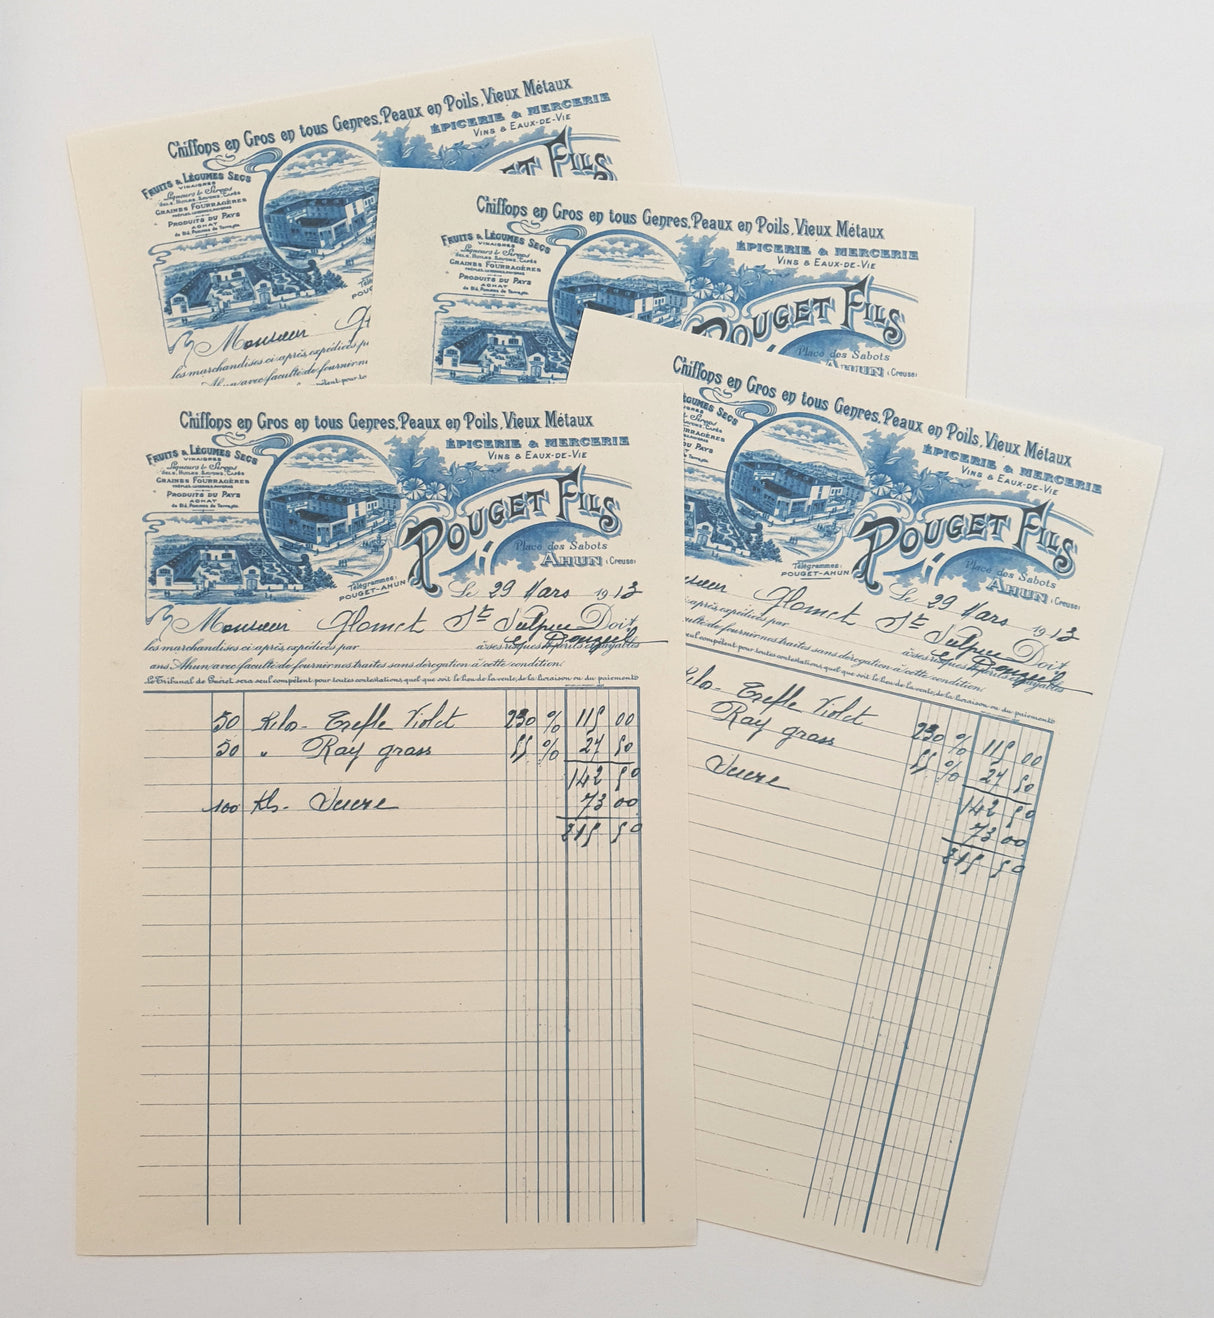 Chiffons en Gros en tous Genres, Peaux en Poils, Vieux Métaux
ÉPICERIE & MERCERIE
VINS & EAUX-DE-VIE
FRUITS & LÉGUMES SECS
VINAIGRES
Liqueurs & Sirops
SELS, HUILES, SAVONS, CAFÉS
GRAINES FOURRAGÈRES
PRODUITS DU PAYS
ACHAT
de Blé, Pommes de Terre, etc.
ET FILS
Télé
POUG
Monsieur Gl
les marchandises ci après expédiées p
Ahun avec faculté de fournir n
Chiffons en Gros en tous Genres, Peaux en Poils, Vieux Métaux
ÉPICERIE & MERCERIE
VINS & EAUX-DE-VIE
FRUITS & LÉGUMES SECS
VINAIGRES
Liqueurs & Sirops
SELS, HUILES, SAVONS, CAFÉS
GRAINES FOURRAGÈRES
PRODUITS DU PAYS
ACHAT
de Blé, Pommes de Terre, etc.
POUGET FILS
Place des Sabots
AHUN (Creuse)
Chiffons en Gros en tous Genres, Peaux en Poils, Vieux Métaux
ÉPICERIE & MERCERIE
VINS & EAUX-DE-VIE
FRUITS & LÉGUMES SECS
VINAIGRES
Liqueurs & Sirops
SELS, HUILES, SAVONS, CAFÉS
GRAINES FOURRAGÈRES
PRODUITS DU PAYS
ACHAT
de Blé, Pommes de Terre, etc.
POUGET FILS
Place des Sabots
AHUN (Creuse)
Télégrammes:
POUGET-AHUN
Le 29 Mars 1913
Monsieur Glomet St Sulpice Doit
les marchandises ci après expédiées par à ses risques & périls & payables
ans Ahun avec faculté de fournir nos traites sans dérogation à cette condition.
Le Tribunal de Guéret sera seul compétent pour toutes contestations, quel que soit le lieu de la vente, de la livraison ou du paiement
50 Kilo- Trefle Violet 230 % 115 00
50 " Ray grass 55 % 27 50
142 50
100 Kls- Sucre 73 00
215 50
Chiffons en Gros en tous Genres, Peaux en Poils, Vieux Métaux
ÉPICERIE & MERCERIE
VINS & EAUX-DE-VIE
GUMES SECS
Sirops
SAVONS, CAFÉS
RRAGÈRES
DU PAYS
POUGET FILS
Place des Sabots
AHUN (Creuse)
Télégrammes:
POUGET-AHUN
Le 29 Mars 1913
sieur Glomet St Sulpice Doit
après expédiées par à ses risques & périls & payables
culté de fournir nos traites sans dérogation à cette condition.
seul compétent pour toutes contestations, quel que soit le lieu de la vente, de la livraison ou du paiement
ilo- Trefle Violet 230 % 115 00
Ray grass 55 % 27 50
142 50
Sucre 73 00
215 50